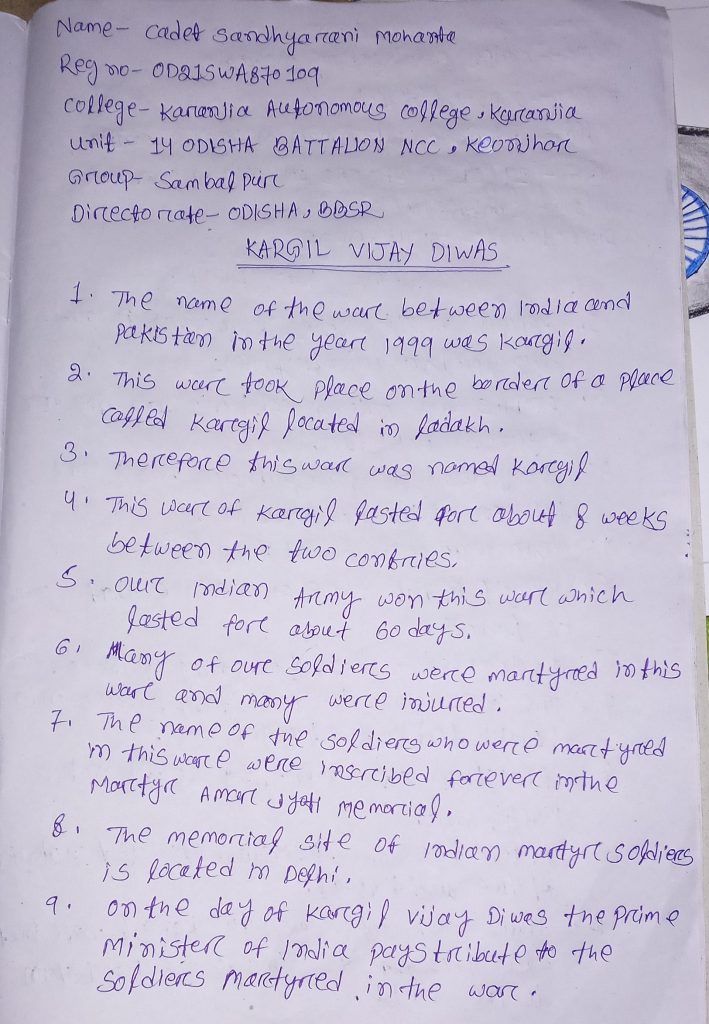 Name- Cadet Sandhyarani Mohanta
Reg no- OD21SWA870109
College- Karanjia Autonomous college, Karanjia
Unit - 14 ODISHA BATTALION NCC, Keonjhar
Group- Sambalpur
Directorate- ODISHA, BBSR
KARGIL VIJAY DIWAS
1. The name of the war between India and
Pakistan in the year 1999 was Kargil.
2. This war took place on the border of a place
called Kargil located in ladakh.
3. Therefore this war was named Kargil
4. This war of Kargil lasted for about 8 weeks
between the two contries.
5. Our Indian Army won this war which
lasted for about 60 days.
6. Many of our soldiers were martyred in this
war and many were injured.
7. The name of the soldiers who were martyred
in this ware were inscribed forever in the
Martyr Amar Jyoti Memorial.
8. The memorial site of Indian martyr soldiers
is located in Delhi.
9. On the day of Kargil Vijay Diwas the Prime
Minister of India pays tribute to the
soldiers martyred in the war.